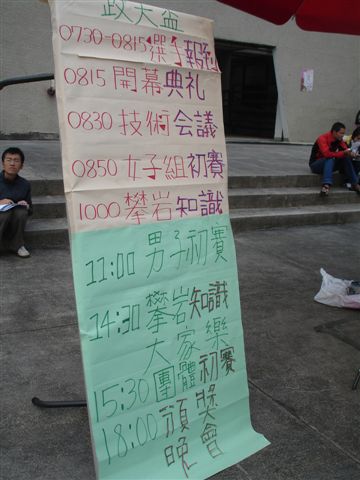 政大盃
0730-0815選手報到
0815開幕典礼
0830技術会議
0850女子組初賽
1000攀岩知識
11:00男子初賽
14:30攀岩知識
大家樂
15:30團體初賽
18:00頒獎
晚會